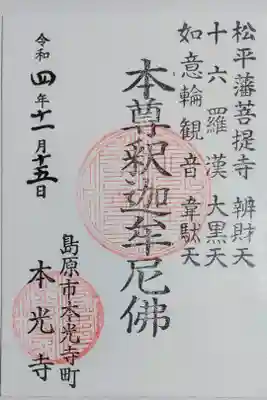 松平藩菩提寺 辨財天
十六羅漢 大黒天
如意輪観音 韋駄天
本尊釋迦牟尼佛
令和四年十一月十五日
島原市本光寺町
本光寺